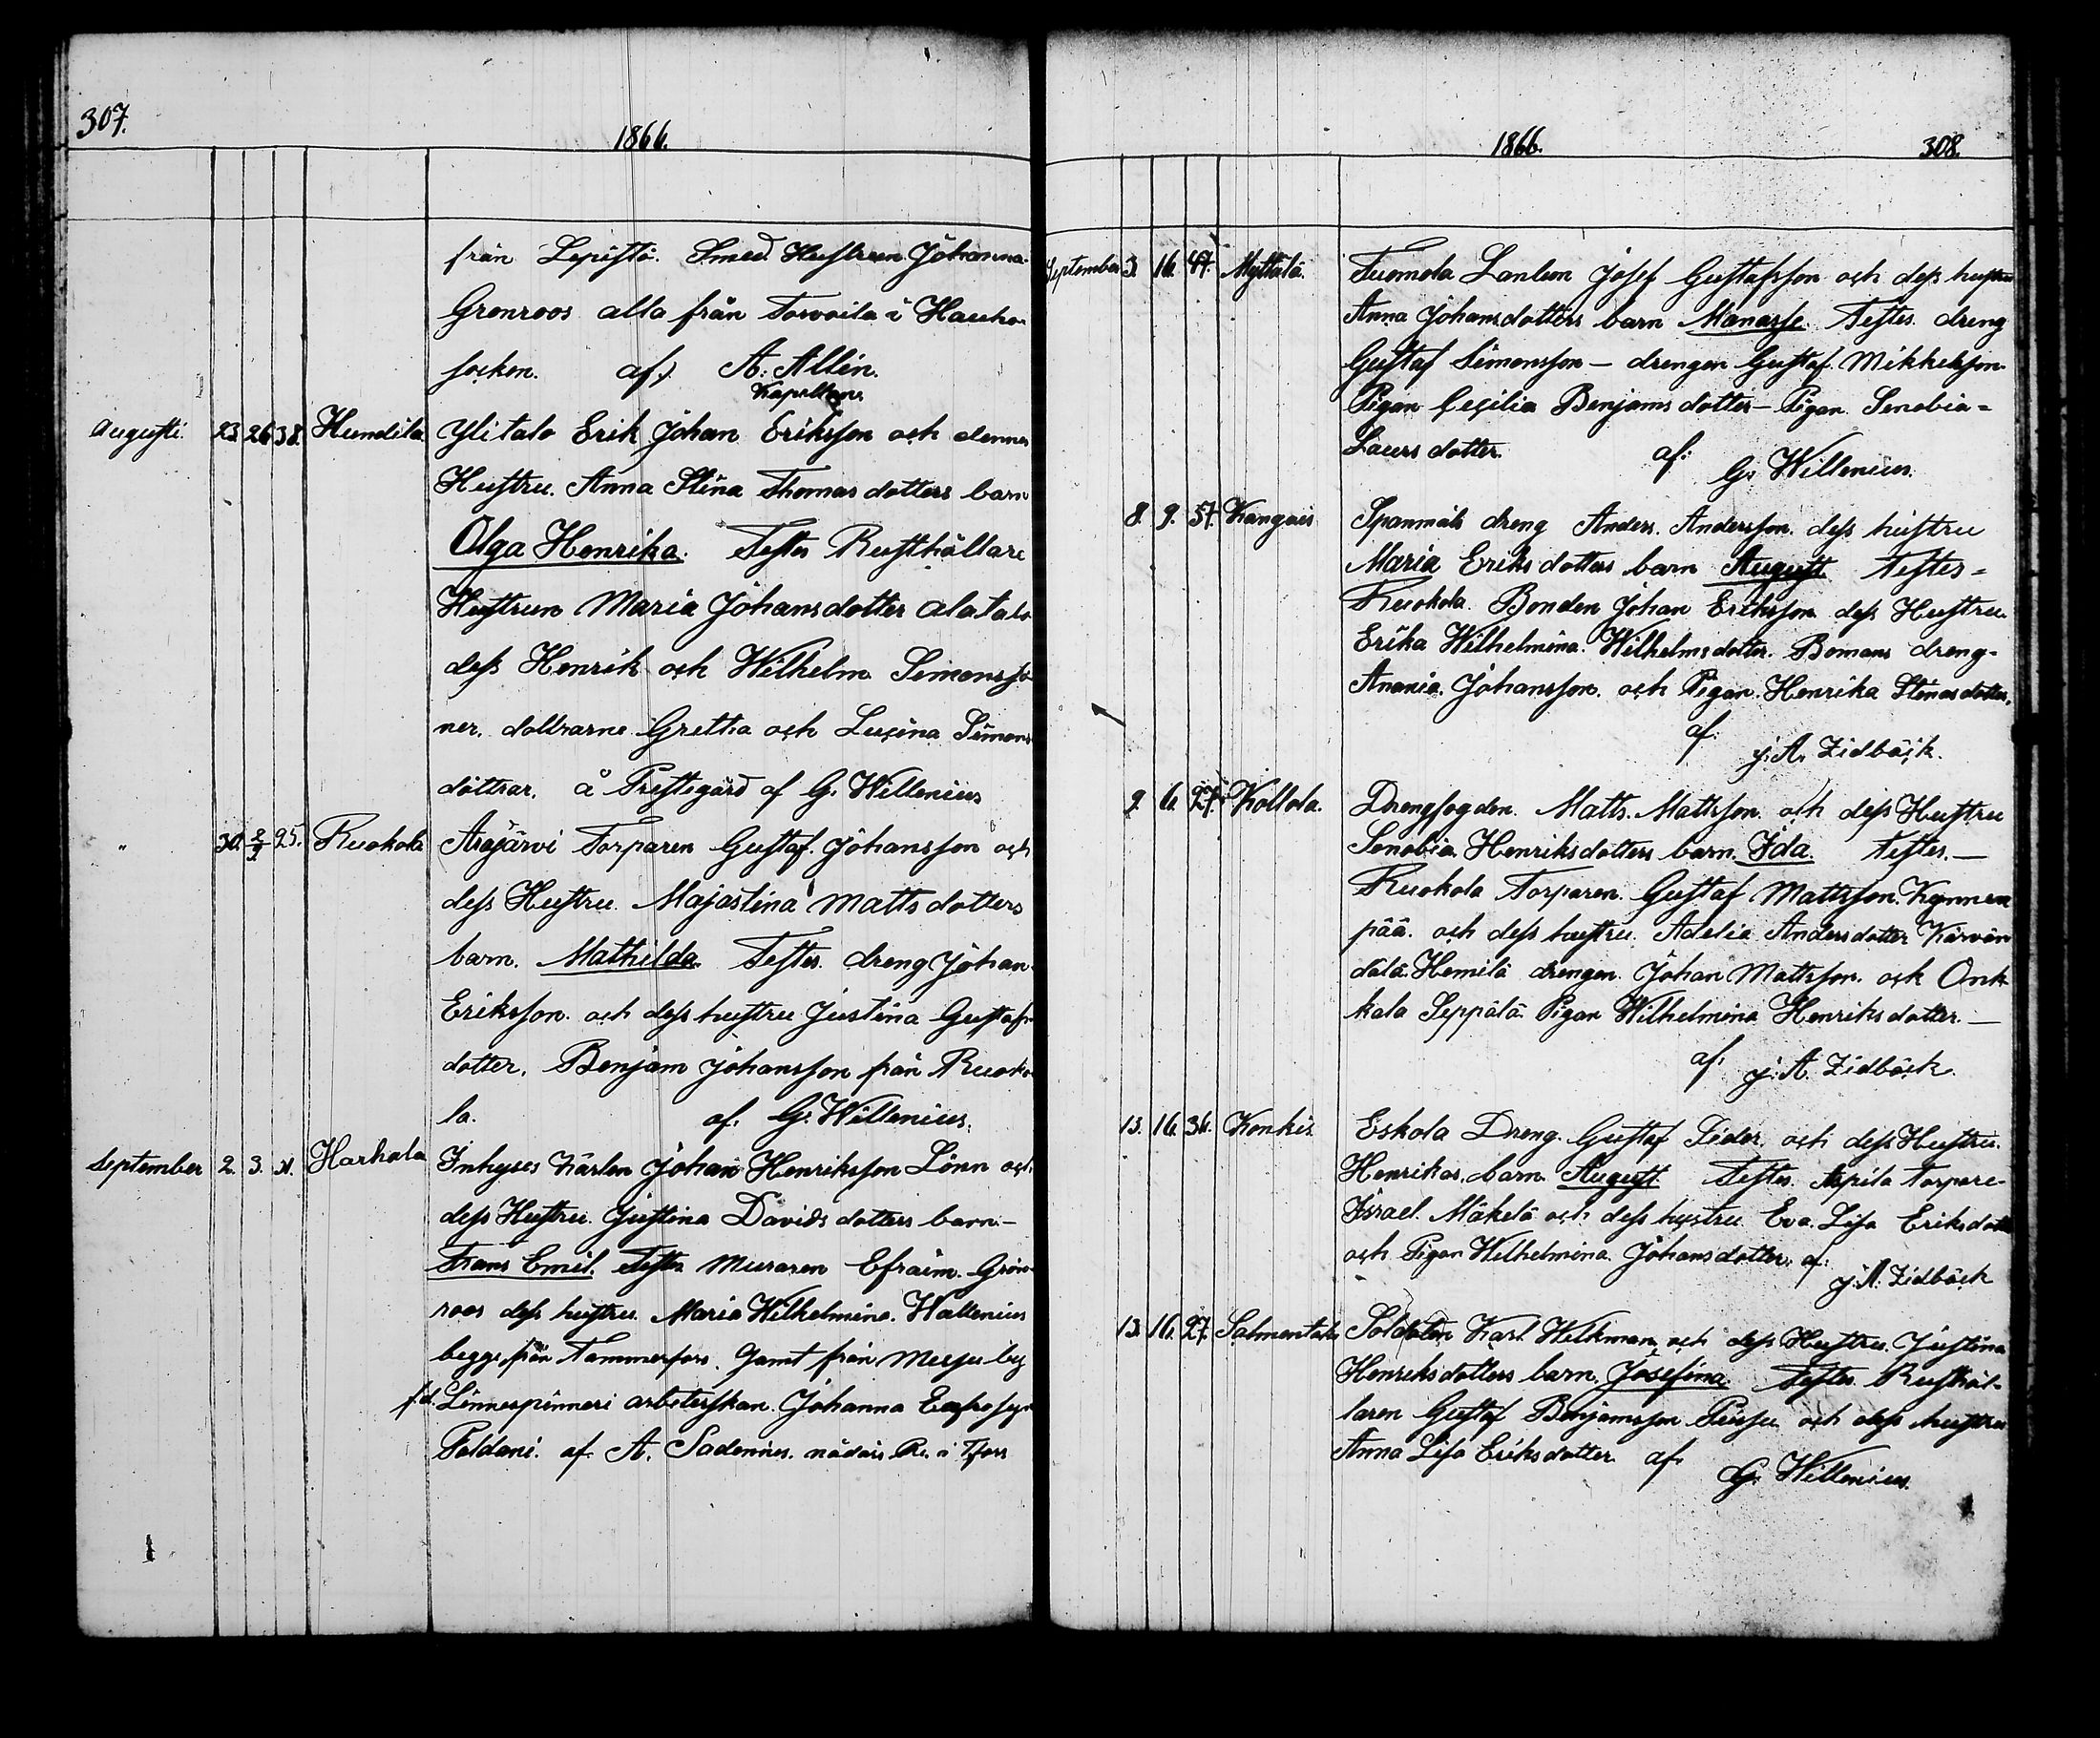 307.
1866.
från Lepistö. Smed Hustrun Johanna
Grönroos alla från Torvoila i Hauho
socken. af) A. Allén.
Kapellan.
Augusti. 23. 26. 38. Hundila Ylitalo Erik Johan Eriksson och dennes
Hustru. Anna Stina Thomas dotters barn
Olga Henrika. Testes Rusthållare
Hustrun Maria Johansdotter Alatalo
dess Henrik och Wilhelm Simonsso-
ner. dottrarne Gretha och Lusina Simons
döttrar. å Prestegård af G. Willenius
" 30. 2/9. 25. Ruokola Arajärvi Torparen Gustaf Johansson och
dess Hustru. Majastina Matts dotters
barn. Mathilda. Testes. dreng Johan
Eriksson. och dess hustru Justina Gustafs
dotter. Benjam Johansson från Ruoko-
la. af. G. Willenius.
September 2. 3. Harhala Inhyses Karlen Johan Henriksson Lönn och
dess Hustru. Justina Davids dotters barn-
Frans Emil. Testes Muraren Efraim Grön-
roos dess hustru. Maria Wilhelmina. Wallenius
begge från Tammerfors. Samt från by
f.d. Linnespinneri arbeterskan. Johanna
Poldani. af A. Sadenius. nådårs Pr. i Tfors
1866.
308.
September 3. 16. 47. Myttälä. Tuomola Lanbon Josef Gustafsson och dess hustru
Anna Johansdotters barn Manasse. Testes. dreng
Gustaf Simonsson - drengen Gustaf Mikkelsson
Pigan Cecilia Benjamsdotter - Pigan Senobia =
Laursdotter. af: G. Willenius.
8. 9. 57. Kangais Spanmåls dreng Anders. Andersson. dess hustru
Maria Eriks dotters barn August. Testes =
Ruokola. Bonden Johan Eriksson dess Hustru
Erika Wilhelmina. Wilhelmsdotter. Bomans dreng-
Anania. Johansson. och Pigan. Henrika Stenasdotter.
af. J. A. Zidbäck.
9. 6. 27. Kollola. Drengfogden. Matts. Mattsson. och dess Hustru
Senobia. Henriksdotters barn. Ida. Testes. —
Ruokola Torparen. Gustaf Mattsson. Kynnen
pää. och dess hustru. Adelia Andersdotter Kärvän
dälä. Hemilä drengen. Johan Mattsson. och Onk-
kala Seppälä Pigan Wilhelmina Henriks dotter. —
af. J. A. Zidbäck.
13. 16. 36. Konkis. Eskola Dreng. Gustaf Lider. och dess Hustru.
Henrikas. barn. August. Testes. Torpare-
Israel. Mäkelä och dess hustru Eva. Lisa Eriksdotter
och Pigan Wilhelmina. Johansdotter. af. J. A. Zidbäck
13. 16. 27. Salmentaka Soldaten Karl Wilkman och dess Hustru. Justina
Henriksdotters barn. Josefina. Testes Rusthål-
laren Gustaf Benjamsson och dess hustru
Anna Lisa Eriksdotter af. G. Willenius.